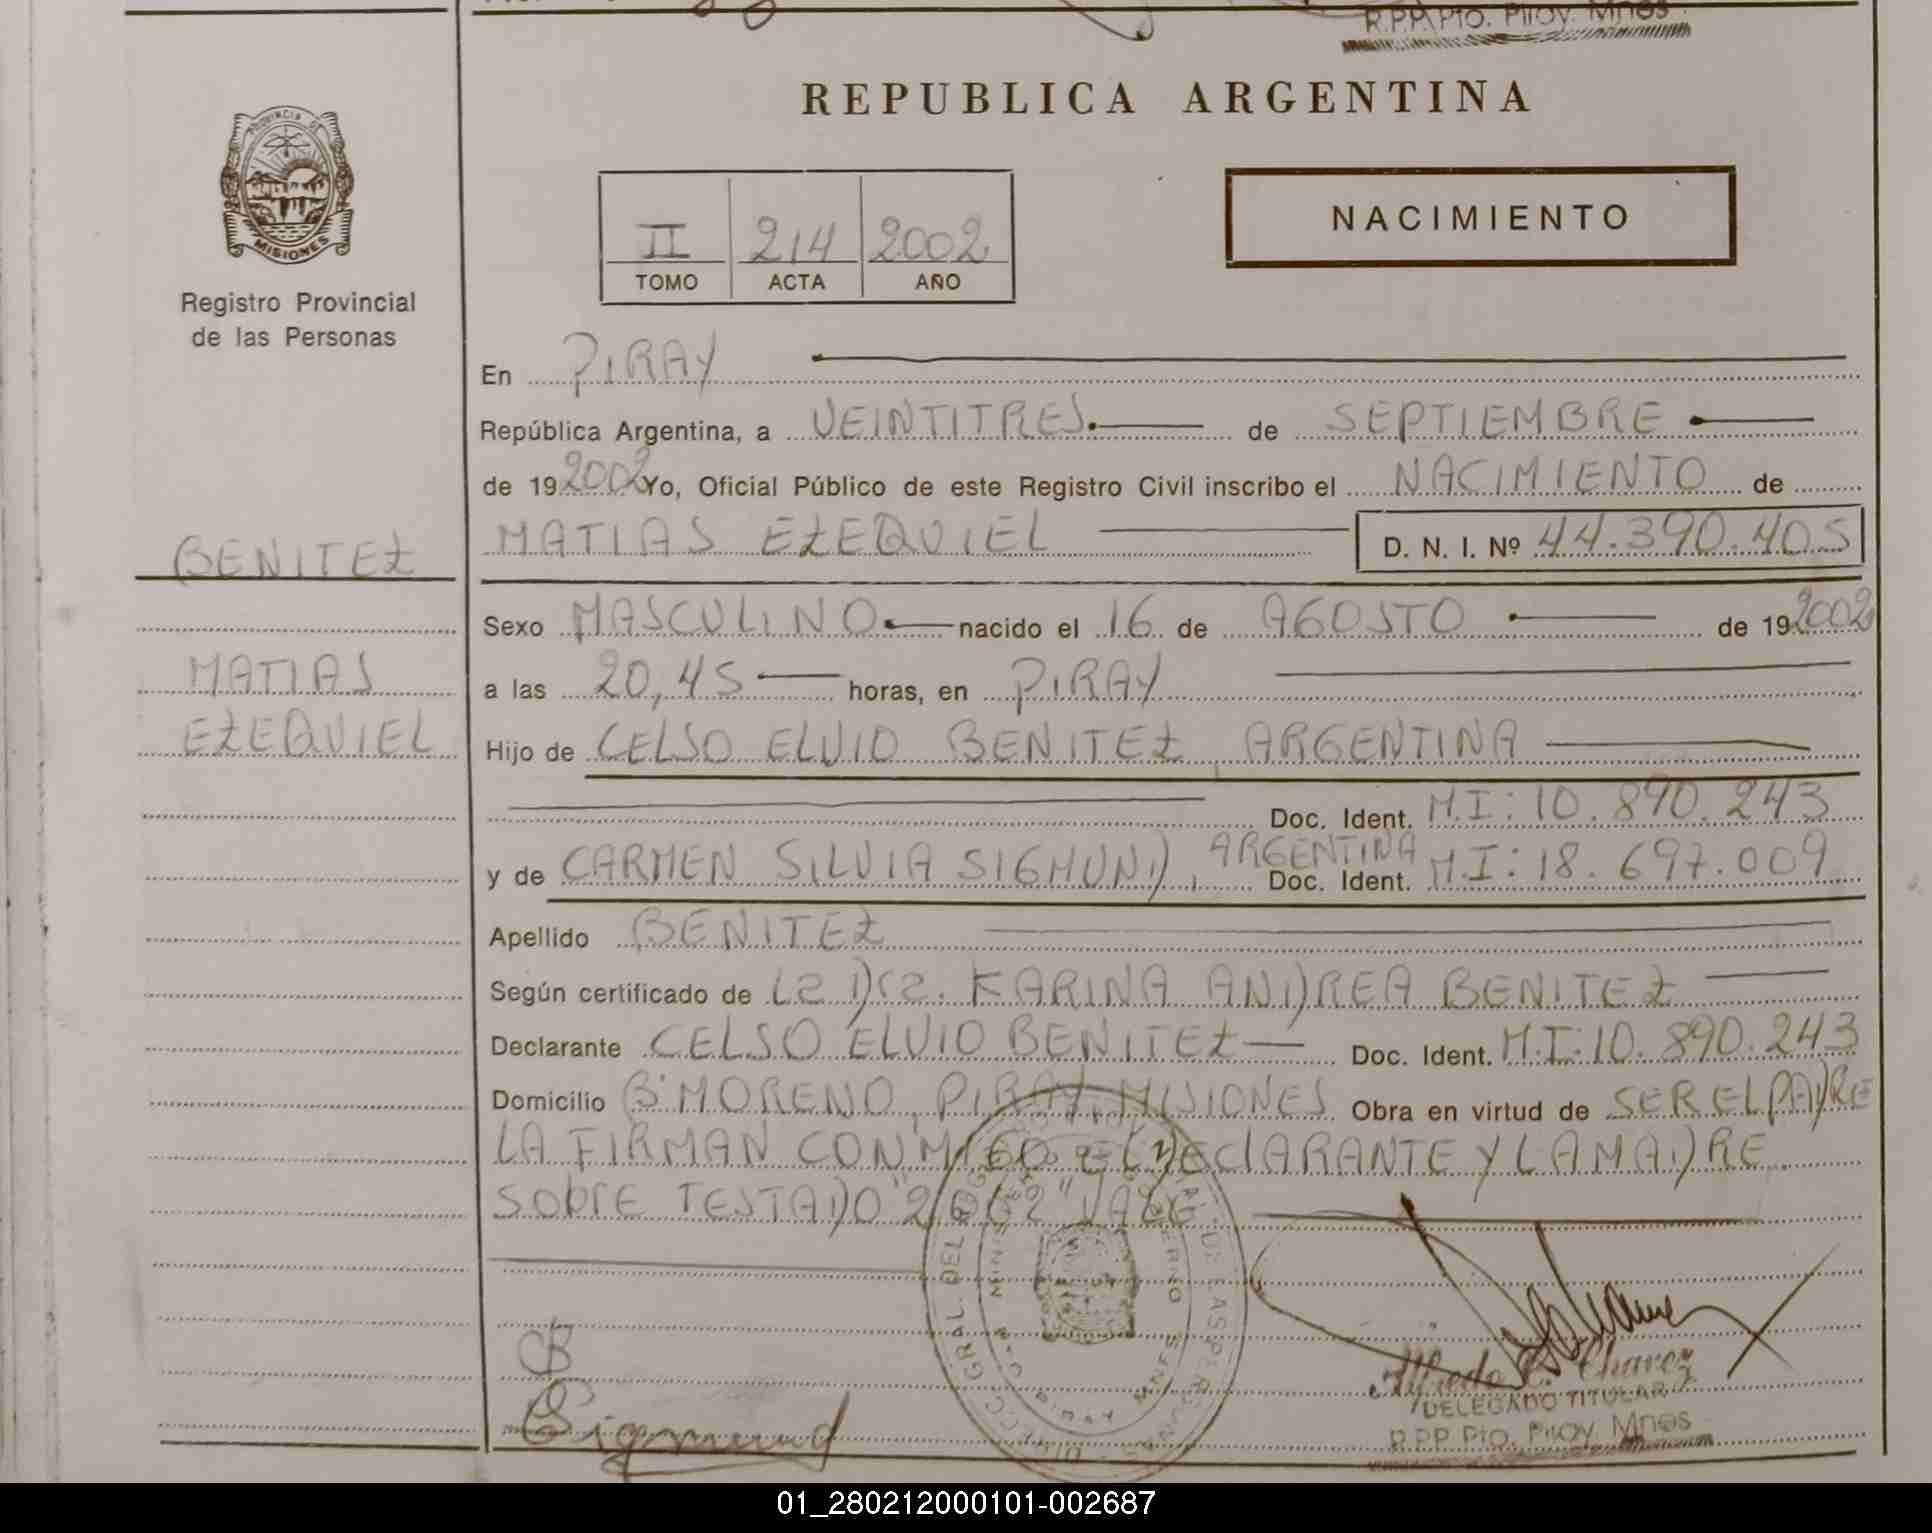 R.P.P. Pto. Piray. Mnes
REPUBLICA ARGENTINA
PROVINCIA DE
MISIONES
Registro Provincial
de las Personas
II 214 2002
TOMO ACTA AÑO
NACIMIENTO
En PIRAY
República Argentina, a VEINTITRES de SEPTIEMBRE
de 19 2002 Yo, Oficial Público de este Registro Civil inscribo el NACIMIENTO de
BENITEZ
MATIAS EZEQUIEL D. N. I. Nº 44.390.405
Sexo MASCULINO nacido el 16 de AGOSTO de 19 2002
MATIAS
EZEQUIEL
a las 20,45 horas, en PIRAY
Hijo de CELSO ELVIO BENITEZ, ARGENTINA
Doc. Ident. M.I: 10.890.243
y de CARMEN SILVIA SIGMUND, ARGENTINA Doc. Ident. M.I: 18.697.009
Apellido BENITEZ
Según certificado de La Dra. KARINA ANDREA BENITEZ
Declarante CELSO ELVIO BENITEZ Doc. Ident. M.I: 10.890.243
Domicilio Bº MORENO, PIRAY, MISIONES Obra en virtud de SER EL PADRE
LA FIRMAN CONMIGO EL DEClARANTE Y LA MADRE
SObrE TESTADO "2002" VALE
CB
Sigmund
Alfredo E. Chavez
DELEGADO TITULAR
R.P.P. Pto. Piray. Mnes
01_280212000101-002687